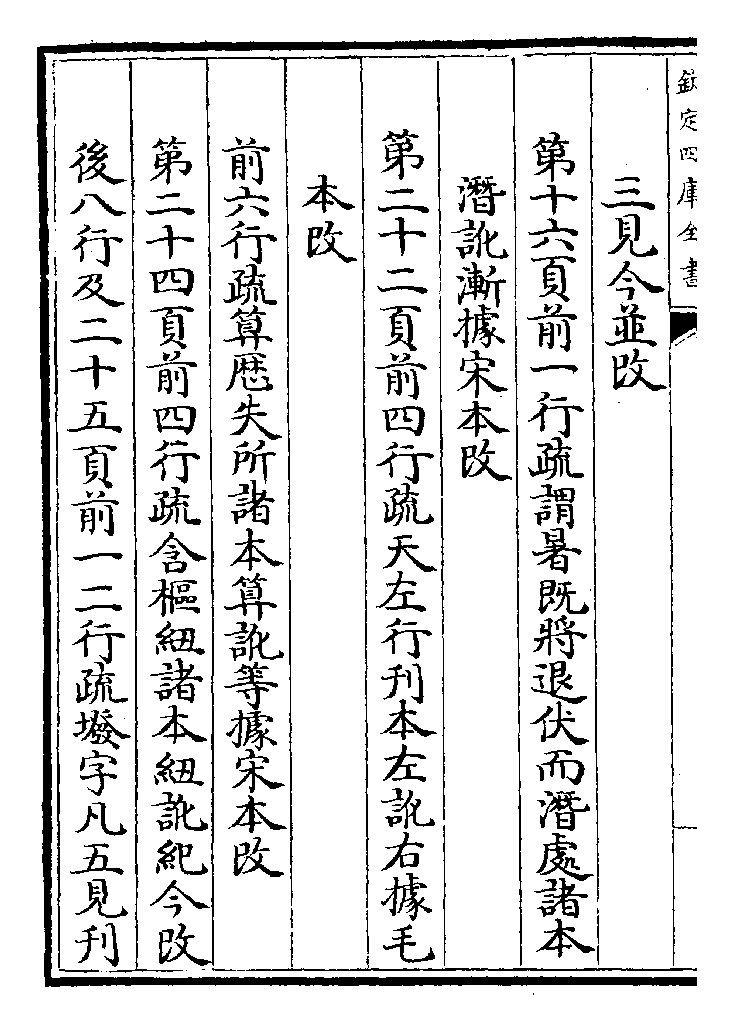 欽定四庫全書
三見今並改
第十六頁前一行疏謂暑既將退伏而潛處諸本
潛訛漸據宋本改
第二十二頁前四行疏天左行刊本左訛右據毛
本改
前六行疏算厯失所諸本算訛等據宋本改
第二十四頁前四行疏含樞紐諸本紐訛紀今改
後八行及二十五頁前一二行疏墢字凡五見刊